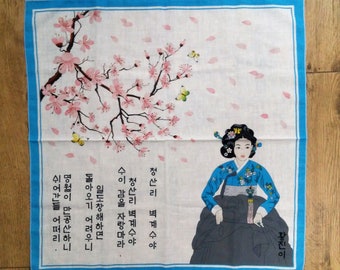 청산리 벽계수야
청산리 벽계수야
수이 감을 자랑마라
일도창해하면
돌아오기 어려우니
명월이 만공산하니
쉬어간들 어떠리
황진이